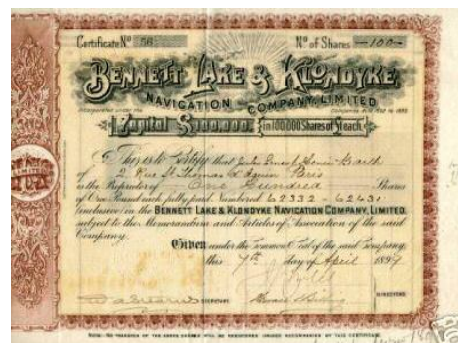 Certificate No 56 No of Shares —100—
BENNETT LAKE & KLONDYKE
NAVIGATION COMPANY, LIMITED
Incorporated under the Companies Acts 1862 to
Capital $100,000, in 100,000 Shares of $1 each.
This is to Certify that
of 2 Rue St Thomas d'Aquin Paris
is the Proprietor of One Hundred Shares
of One Pound each fully paid Numbered 62332 to 62431
inclusive in the BENNETT LAKE & KLONDYKE NAVIGATION COMPANY, LIMITED,
subject to the Memorandum and Articles of Association of the said
Company.
Given under the Common Seal of the said Company
this 7th day of April 1899
SECRETARY
DIRECTORS
NOTE: NO TRANSFER OF THE ABOVE SHARES WILL BE REGISTERED UNLESS ACCOMPANIED BY THIS CERTIFICATE.
LIMITED